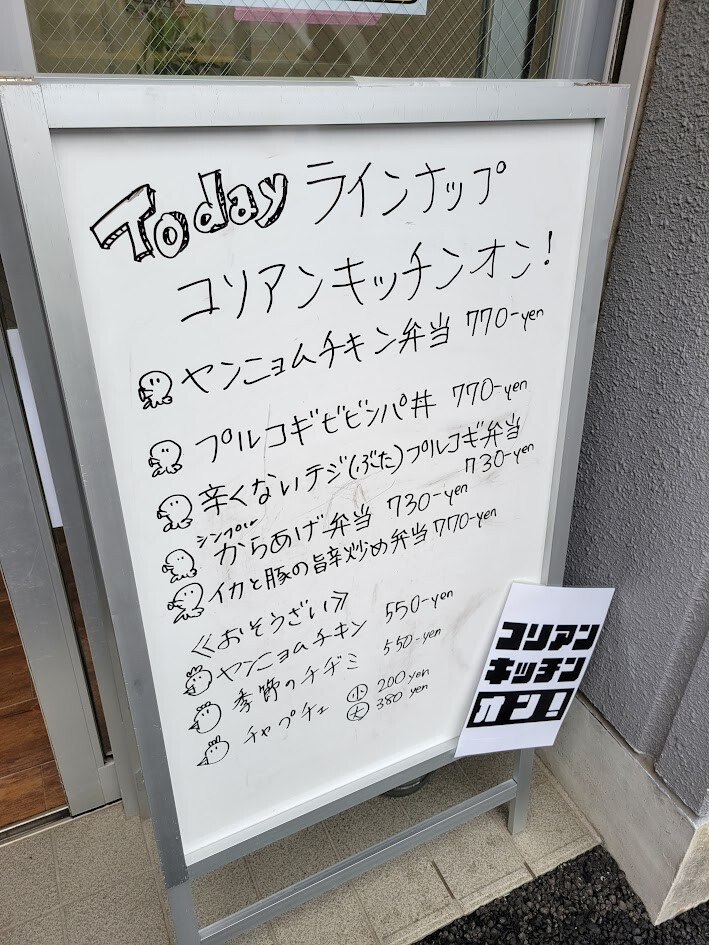 Today ラインナップ
コリアンキッチンオン!
ヤンニョムチキン弁当 770-yen
プルコギビビンパ丼 770-yen
辛くないテジ(ぶた)プルコギ弁当
730-yen
シンプル
からあげ弁当 730-yen
イカと豚の旨辛炒め弁当 770-yen
≪おそうざい≫
ヤンニョムチキン 550-yen
季節のチヂミ 550-yen
チャプチェ 小 200 yen
大 380 yen
コリアン
キッチン
オン!